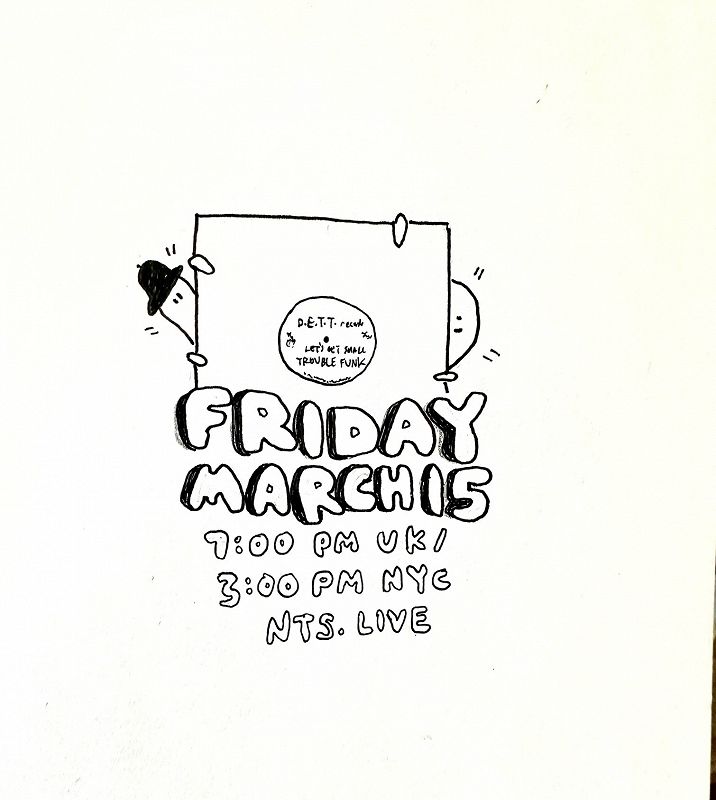 D.E.T.T. records
LET'S GET SMALL
TROUBLE FUNK
FRIDAY
MARCH 15
7:00 PM UK/
3:00 PM NYC
NTS. LIVE